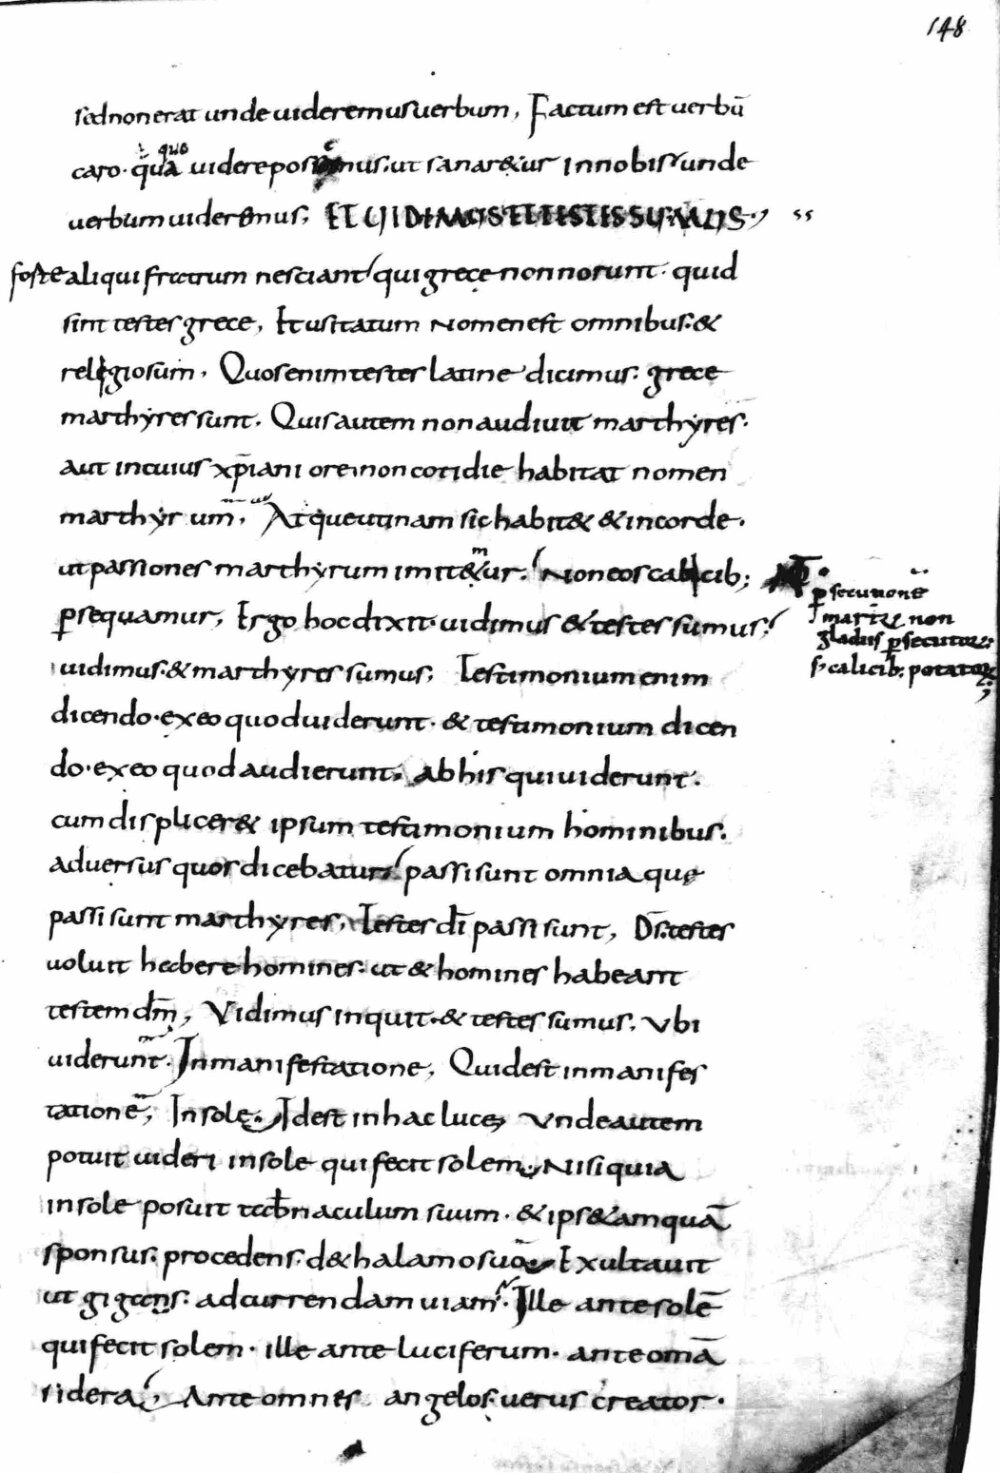 148
sed non erat unde uideremus uerbum, Factum est uerbū
caro · quā uidere possemus · ut sanaretur in nobis unde
uerbum uideremus; ET UIDIMUS ET TESTES SUMUS ·,
forte aliqui fratrum nesciant qui grece non norunt · quid
sint testes grece, Et usitatum nomen est omnibus · &
religiosum · Quos enim testes latine dicimus · grece
marthyres sunt · Quis autem non audiuit marthyres ·
aut in cuius xp̄iani ore non cotidie habitat nomen
marthyrum · Atque utinam sic habit& & in corde ·
ut passiones marthyrum imit&ur · Non eos calicib;
p̱sequamur, Ergo hoc dixit · uidimus & testes sumus ·
uidimus · & marthyres sumus; Testimonium enim
dicendo · ex eo quod uiderunt · & testimonium dicen
do · ex eo quod audierunt · ab his qui uiderunt ·
cum displicer& ipsum testimonium hominibus ·
aduersus quos dicebatur passi sunt omnia quę
passi sunt marthyres, Testes dī passi sunt, D̄s testes
uoluit habere homines · ut & homines habeant
testem dm̄, Vidimus inquit · & testes sumus · Vbi
uiderunt · In manifestatione, Quid est in manifes
tatione, In sole · Id est in hac luce, Vnde autem
potuit uideri in sole qui fecit solem Nisi quia
in sole posuit tabernaculum suum · & ipse tamquā
sponsus · procedens · de thalamo suo Exultauit
ut gigans · ad currendam uiam · Ille ante solē
qui fecit solem · ille ante luciferum · ante om̄a
sidera, Ante omnes angelos uerus creator ·
p̱secutione
martires non
gladiis p̱secutor
s; calicib; potator